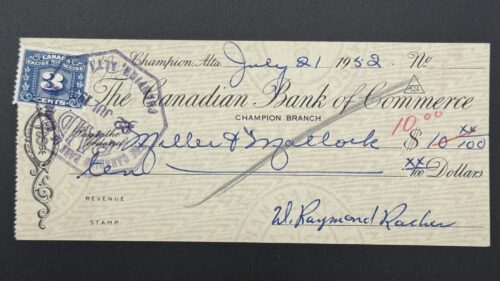 Champion, Alta July 21 1952 No
CANADA
EXCISE EXCISE
3
CENTS
The Canadian Bank of Commerce
CHAMPION BRANCH
10.00
Pay to the
order of Miller & Mallock $ 10 xx/100
ten xx/100 Dollars
REVENUE
STAMP
W. Raymond Racher